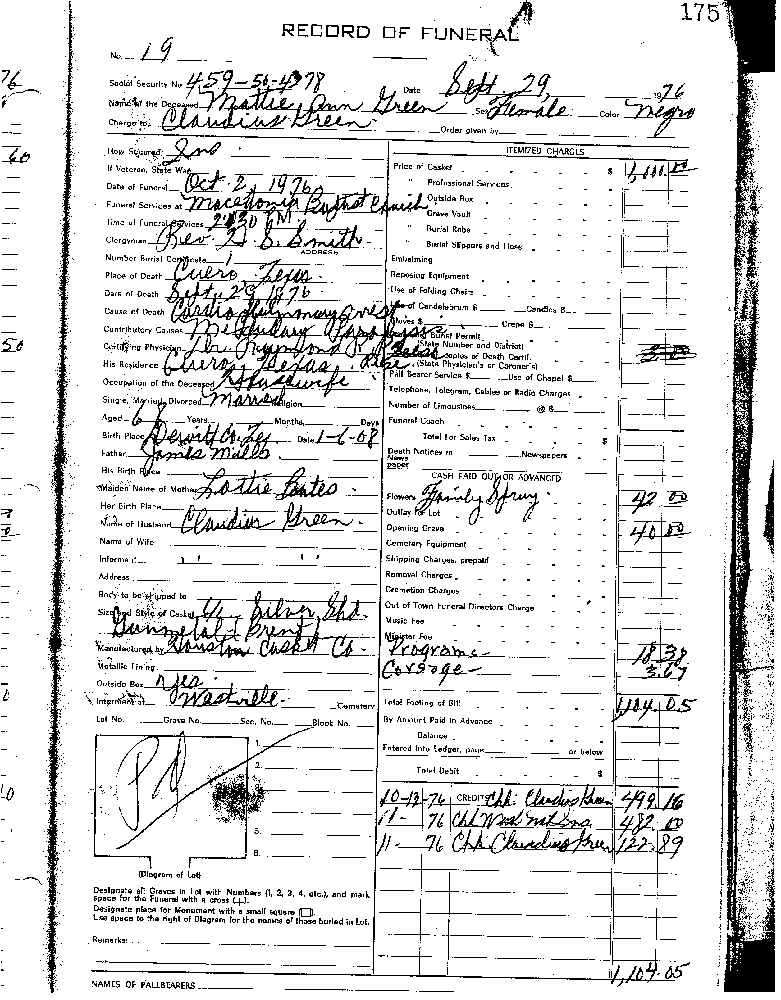 175
RECORD OF FUNERAL
No. 19
Social Security No. 459-56-4978 Date Sept. 29, 1976
Name of the Deceased Mattie Ann Green Sex Female Color Negro
Charge to Claudius Green Order given by
How Secured Ins
If Veteran, State War
Date of Funeral Oct 2, 1976
Funeral Services at Macedonia Baptist Church
Time of Funeral Services 2:30 PM
Clergyman Rev. S. Smith
ADDRESS
Number Burial Certificate 1
Place of Death Cuero, Texas
Date of Death Sept. 29 1976
Cause of Death Cardio Pulmonary Arrest
Contributory Causes Medullary
Certifying Physician Dr. Raymond
His Residence Cuero, Texas
Occupation of the Deceased Housewife
Single, Married, Divorced Married Religion
Aged 68 Years Months Days
Birth Place Dewitt Co. Tex Date 1-6-08
Father James Mills
His Birth Place
Maiden Name of Mother Lottie Bates
Her Birth Place
Name of Husband Claudius Green
Name of Wife
Informant " "
Address
Body to be shipped to
Size and Style of Casket 6/6 Silver Shd.
Gunmetal
Manufactured by Houston Casket Co
Metallic Lining
Outside Box yes
Interment at Westville Cemetery
Lot No. Grave No. Sec. No. Block No.
Pd
1.
2.
5.
6.
(Diagram of Lot)
Designate all Graves in Lot with Numbers (1, 2, 3, 4, etc.), and mark
space for the Funeral with a cross (+).
Designate place for Monument with a small square
Use space to the right of Diagram for the names of those buried in Lot.
Remarks:
NAMES OF PALLBEARERS
ITEMIZED CHARGES
Price of Casket $ 1,000.00
" Professional Services
" Outside Box
" Grave Vault
" Burial Robe
" Burial Slippers and Hose
Embalming
Reposing Equipment
Use of Folding Chairs
Use of Candelabrum $ Candles $
Gloves $ Crepe $
Burial Permit
(State Number and District)
Copies of Death Certif.
(State Physician's or Coroner's)
Pall Bearer Service $ Use of Chapel $
Telephone, Telegram, Cables or Radio Charges
Number of Limousines @ $
Funeral Coach
Total For Sales Tax $
Death Notices in Newspapers
News
paper
CASH PAID OUT OR ADVANCED
Flowers Family Spray 42 00
Outlay for Lot
Opening Grave 40 00
Cemetery Equipment
Shipping Charges, prepaid
Removal Charges
Cremation Charges
Out of Town Funeral Directors Charge
Music Fee
Minister Fee
Programs 18.38
Corsage 3.67
Total Footing of Bill 1,104.05
By Amount Paid in Advance
Balance
Entered into Ledger, page or below
Total Debit $
10-13-76 CREDIT Chk. Claudius Green 499.16
11- 76 Chk West Nat Ins. 482.00
11- 76 Chk Claudius Green 122.89
1,104.05